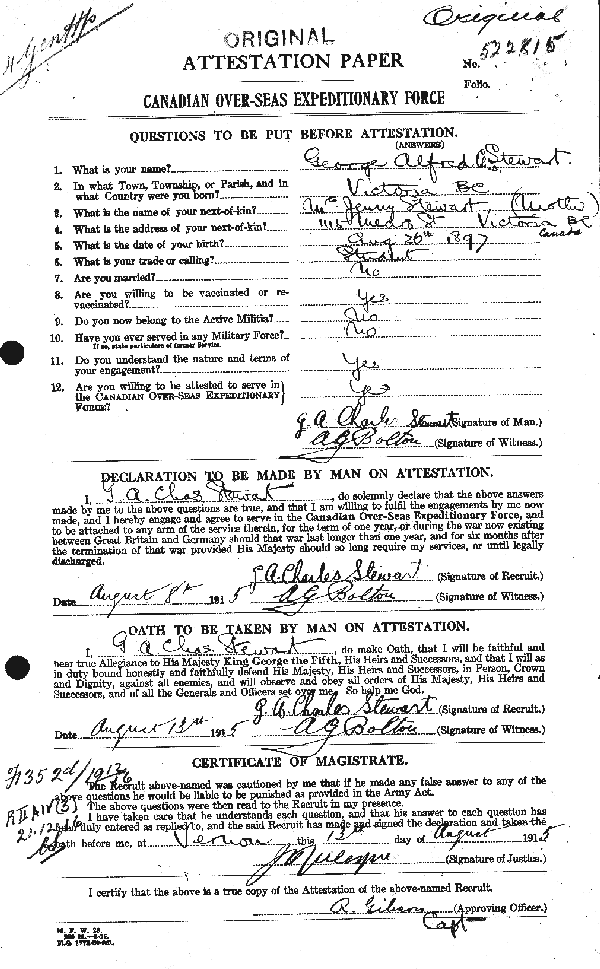 Original
ORIGINAL
ATTESTATION PAPER
No. 522815
Folio.
CANADIAN OVER-SEAS EXPEDITIONARY FORCE
QUESTIONS TO BE PUT BEFORE ATTESTATION.
(ANSWERS)
1. What is your name? George Alfred C. Stewart
2. In what Town, Township, or Parish, and in
what Country were you born? Victoria BC
3. What is the name of your next-of-kin? Mrs Jenny Stewart (Mother)
4. What is the address of your next-of-kin? St Victoria BC
Canada
5. What is the date of your birth? Aug 30th 1897
6. What is your trade or calling? Student
7. Are you married? No
8. Are you willing to be vaccinated or re-
vaccinated? Yes
9. Do you now belong to the Active Militia? No
10. Have you ever served in any Military Force? No
If so, state particulars of former Service.
11. Do you understand the nature and terms of
your engagement? Yes
12. Are you willing to be attested to serve in
the CANADIAN OVER-SEAS EXPEDITIONARY
FORCE? Yes
G A Charles Stewart (Signature of Man.)
A G Bolton (Signature of Witness.)
DECLARATION TO BE MADE BY MAN ON ATTESTATION.
I, G A. Chas Stewart, do solemnly declare that the above answers
made by me to the above questions are true, and that I am willing to fulfil the engagements by me now
made, and I hereby engage and agree to serve in the Canadian Over-Seas Expeditionary Force, and
to be attached to any arm of the service therein, for the term of one year, or during the war now existing
between Great Britain and Germany should that war last longer than one year, and for six months after
the termination of that war provided His Majesty should so long require my services, or until legally
discharged.
G A Charles Stewart (Signature of Recruit.)
Date August 8th 1915 A G Bolton (Signature of Witness.)
OATH TO BE TAKEN BY MAN ON ATTESTATION.
I, G A Chas Stewart, do make Oath, that I will be faithful and
bear true Allegiance to His Majesty King George the Fifth, His Heirs and Successors, and that I will as
in duty bound honestly and faithfully defend His Majesty, His Heirs and Successors, in Person, Crown
and Dignity, against all enemies, and will observe and obey all orders of His Majesty, His Heirs and
Successors, and of all the Generals and Officers set over me. So help me God.
G. A. Charles Stewart (Signature of Recruit.)
Date August 13th 1915 A G Bolton (Signature of Witness.)
CERTIFICATE OF MAGISTRATE.
The Recruit above-named was cautioned by me that if he made any false answer to any of the
above questions he would be liable to be punished as provided in the Army Act.
The above questions were then read to the Recruit in my presence.
I have taken care that he understands each question, and that his answer to each question has
been duly entered as replied to, and the said Recruit has made and signed the declaration and taken the
oath before me, at Vernon this 13th day of August 1915
(Signature of Justice.)
I certify that the above is a true copy of the Attestation of the above-named Recruit.
R. Gibson (Approving Officer.)
Capt
M. F. W. 23.